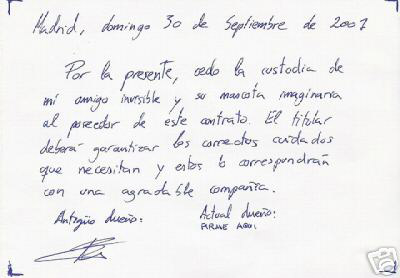 Madrid, domingo 30 de Septiembre de 2007
Por la presente, cedo la custodia de
mi amigo invisible y su mascota imaginaria
al poseedor de este contrato. El titular
deberá garantizar los correctos cuidados
que necesitan y estos le corresponderán
con una agradable compañía.
Antigüo dueño: Actual dueño:
FIRME AQUI
eBay